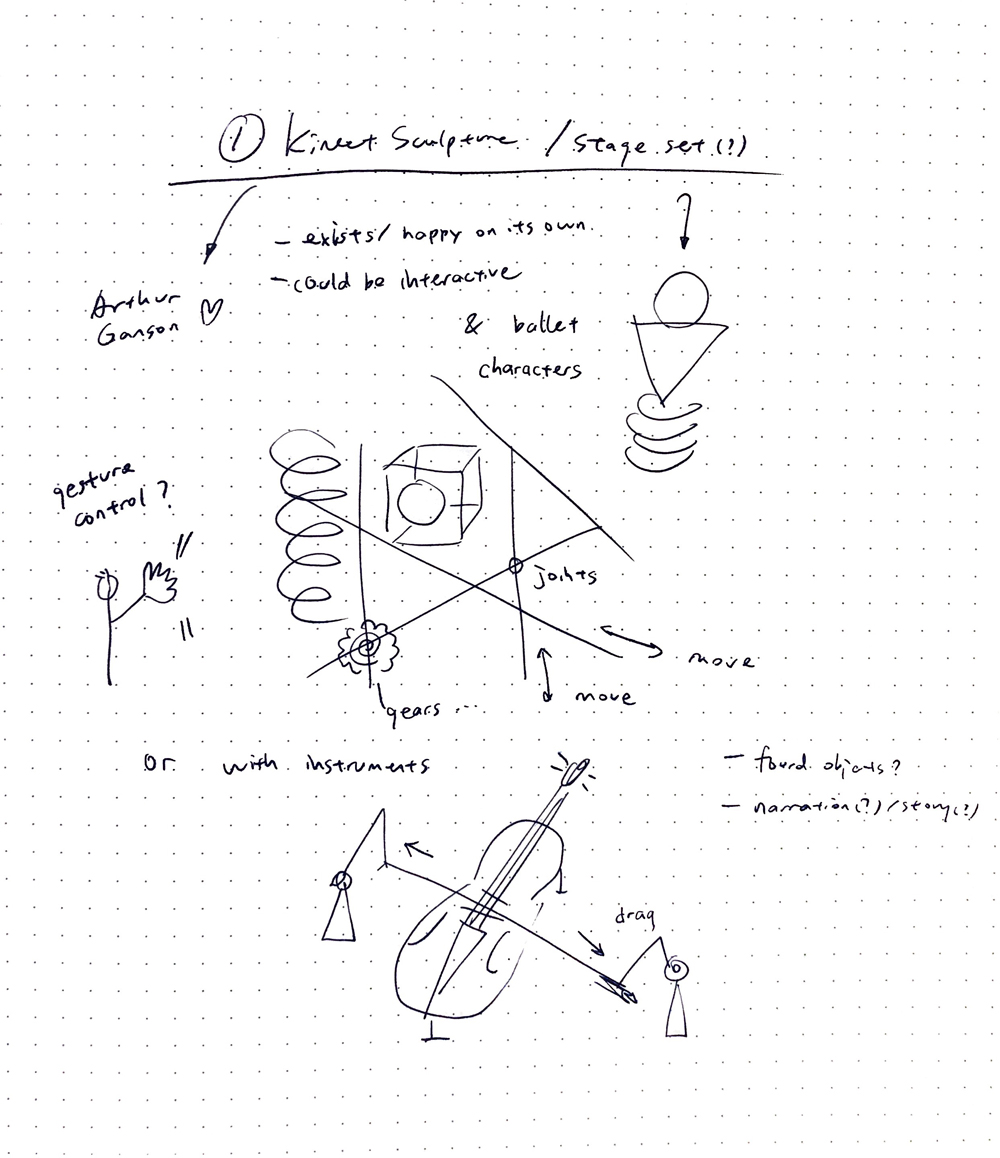 ① Kinect Sculpture / stage set (?)
- exists / happy on its own.
- could be interactive
Arthur
Ganson
& ballet
characters
gesture
control?
joints
move
move
gears ...
Or with instruments
- found objects?
- narration(?) / story(?)
drag